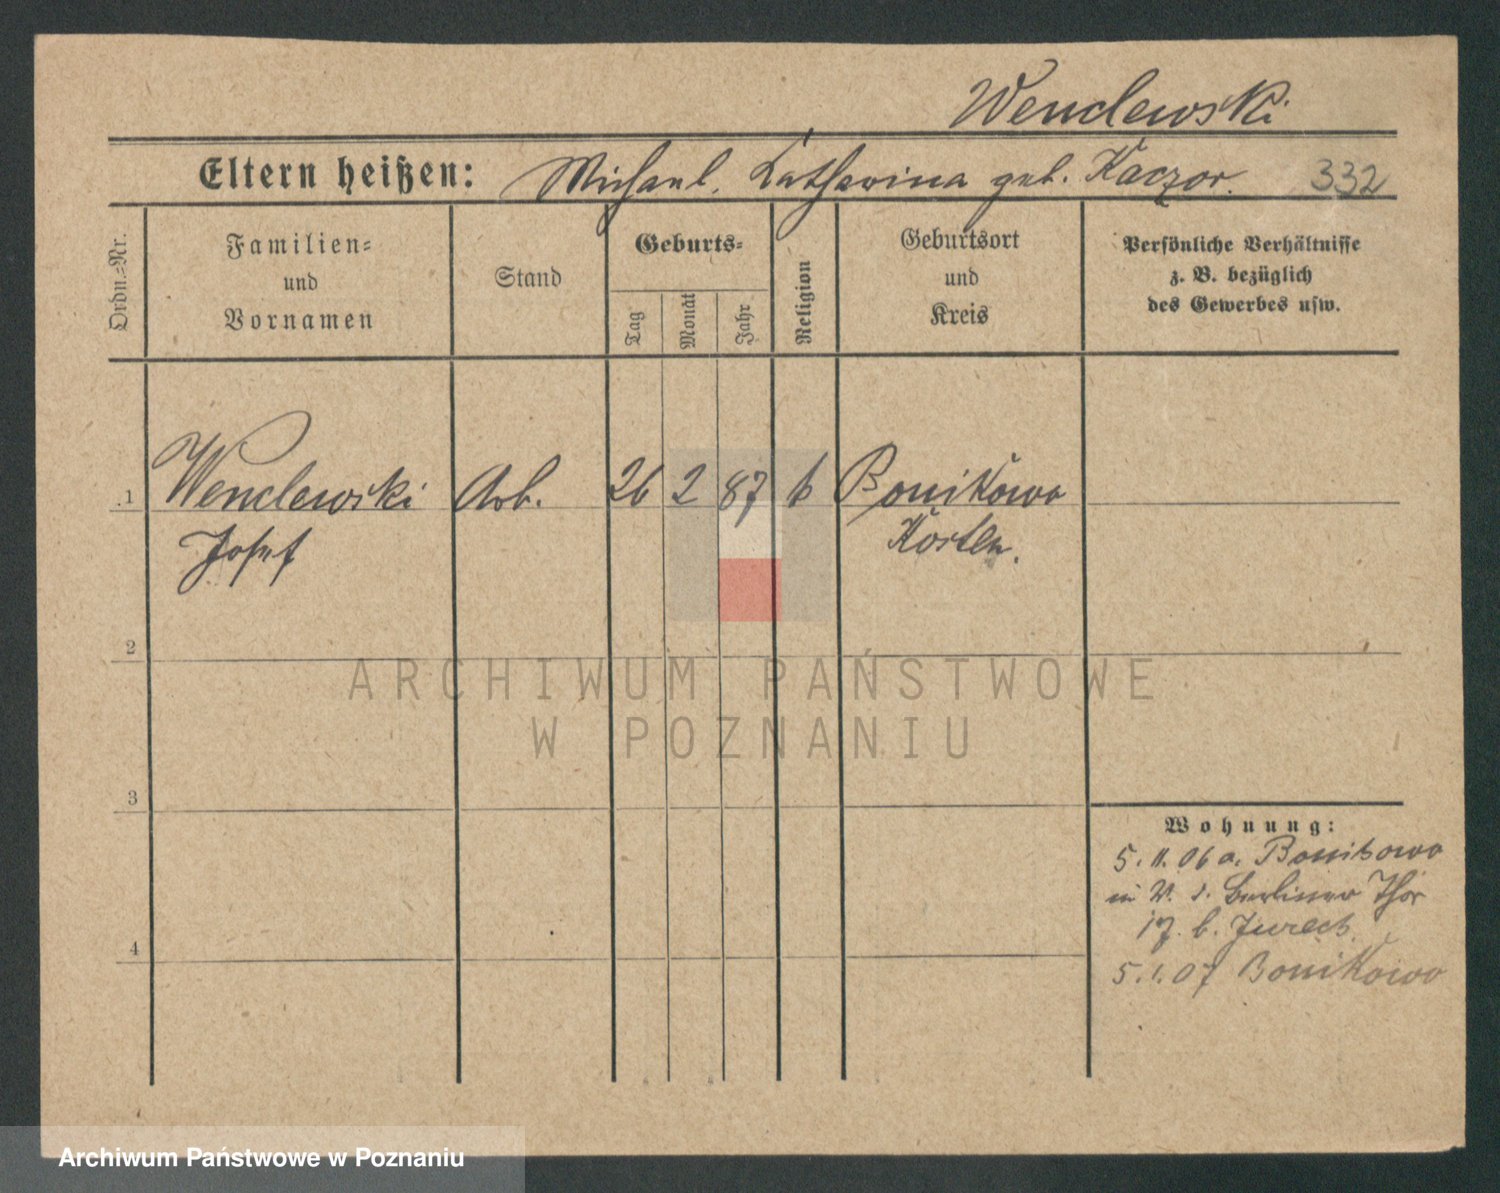 Wenclewski
Eltern heißen: Michael, Katharina geb. Kaczor. 332
Ordn.=Nr.
Familien=
und
Vornamen
Stand
Geburts=
Tag
Monat
Jahr
Religion
Geburtsort
und
Kreis
Persönliche Verhältnisse
z. B. bezüglich
des Gewerbes usw.
1 Wenclewski Arb. 26 2 87 k Bonikowo
Josef Kosten.
2
ARCHIWUM PAŃSTWOWE
W POZNANIU
3
Wohnung:
5. 11. 06 a. Bonikowo
in W. Berliner Thor
17. b. Jurech
4
5. 1. 07 Bonikowo
Archiwum Państwowe w Poznaniu